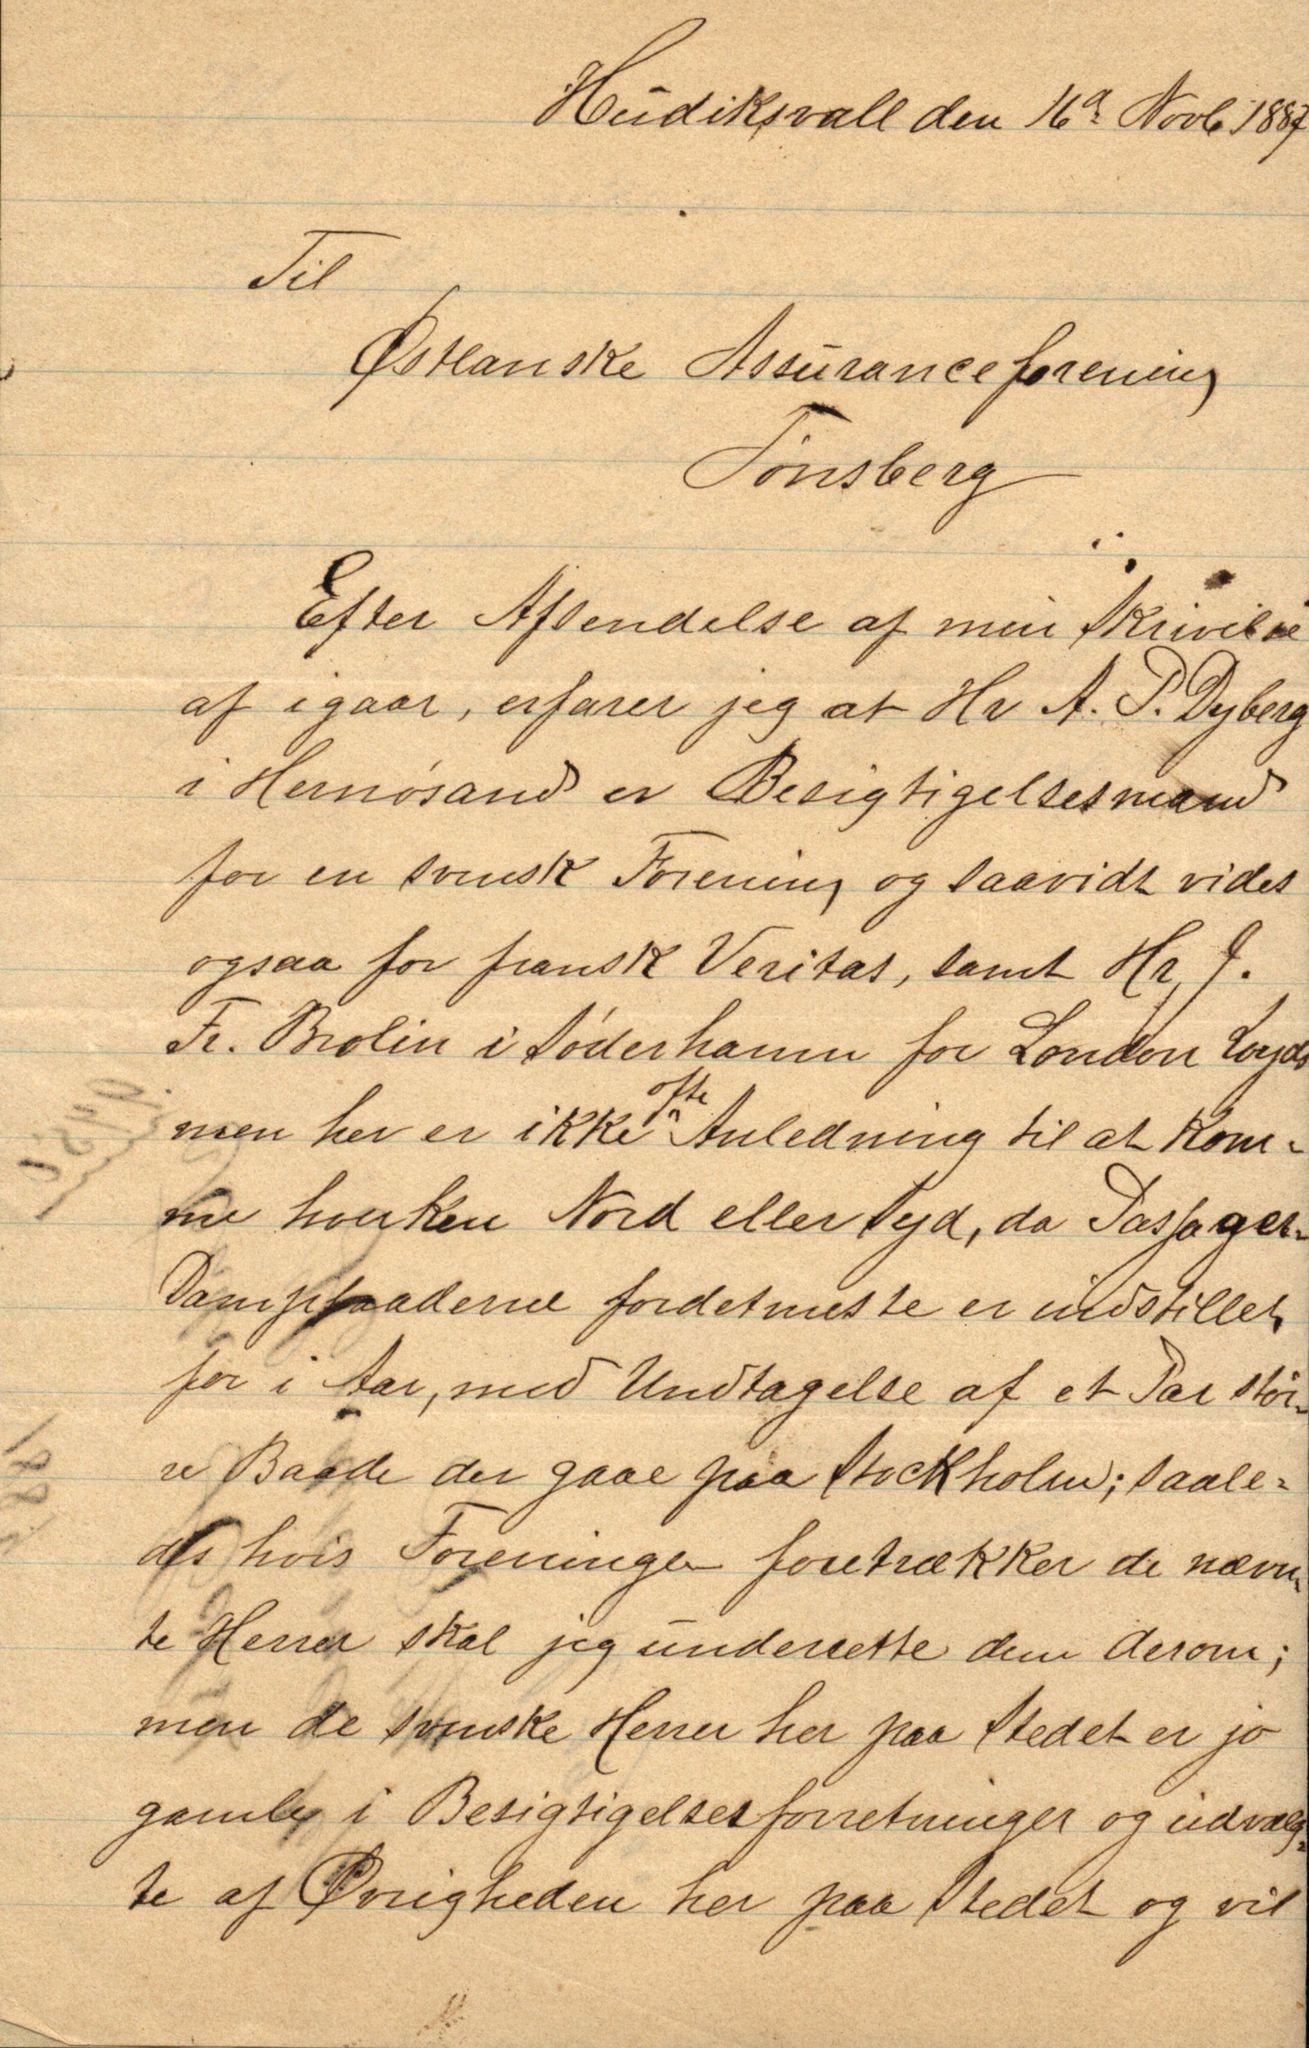 Hudiksvall den 16de Novb 1887
Til
Østlanske Assuranceforening
Tönsberg
Efter Afsendelse af min Skrivelse
af igaar, erfarer jeg at Hr A. P. Dyberg
i Hernøsand er Besigtigelsesmand
for en svensk Forening og saavidt vides
ogsaa for fransk Veritas, samt Hr J.
Fr. Brolin i Søderhamn for London Loyds
men her er ikke ofte Anledning til at kom-
me hverken Nord eller Syd, da Passager-
Dampbaaderne fordetmeste er indstillet
for i Aar, med Undtagelse af et Par stör-
re Baade der gaae paa Stockholm; saale-
des hvis Foreningen foretrækker de nævn-
te Herrer skal jeg underrette dem derom;
men de svenske Herrer her paa Stedet er jo
gamle i Besigtigelsesforretninger og udvalg-
te af Øvrigheden her paa Stedet og vil